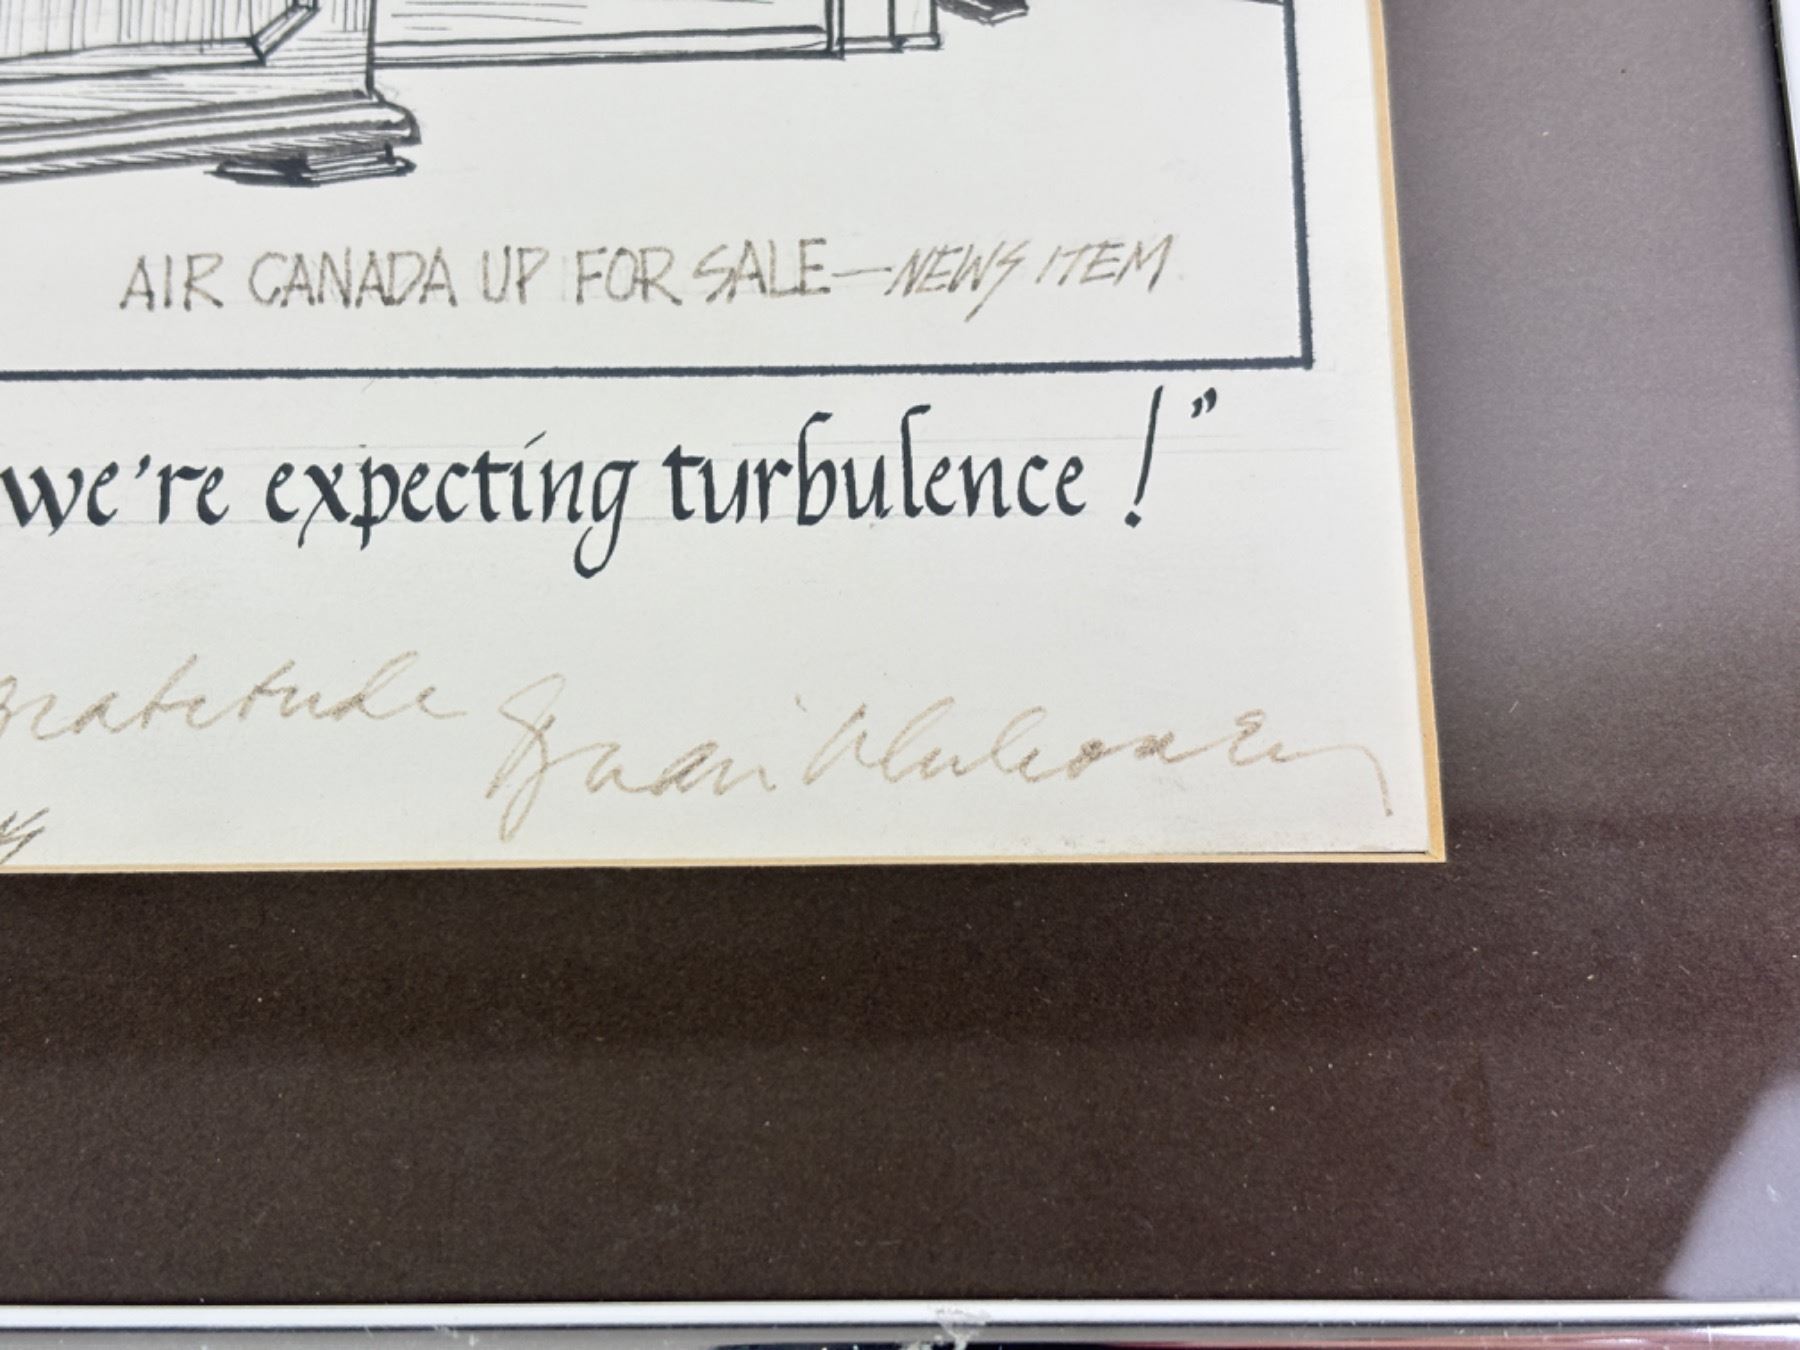 AIR CANADA UP FOR SALE—NEWS ITEM
we're expecting turbulence!”
gratitude Brian Mulroney